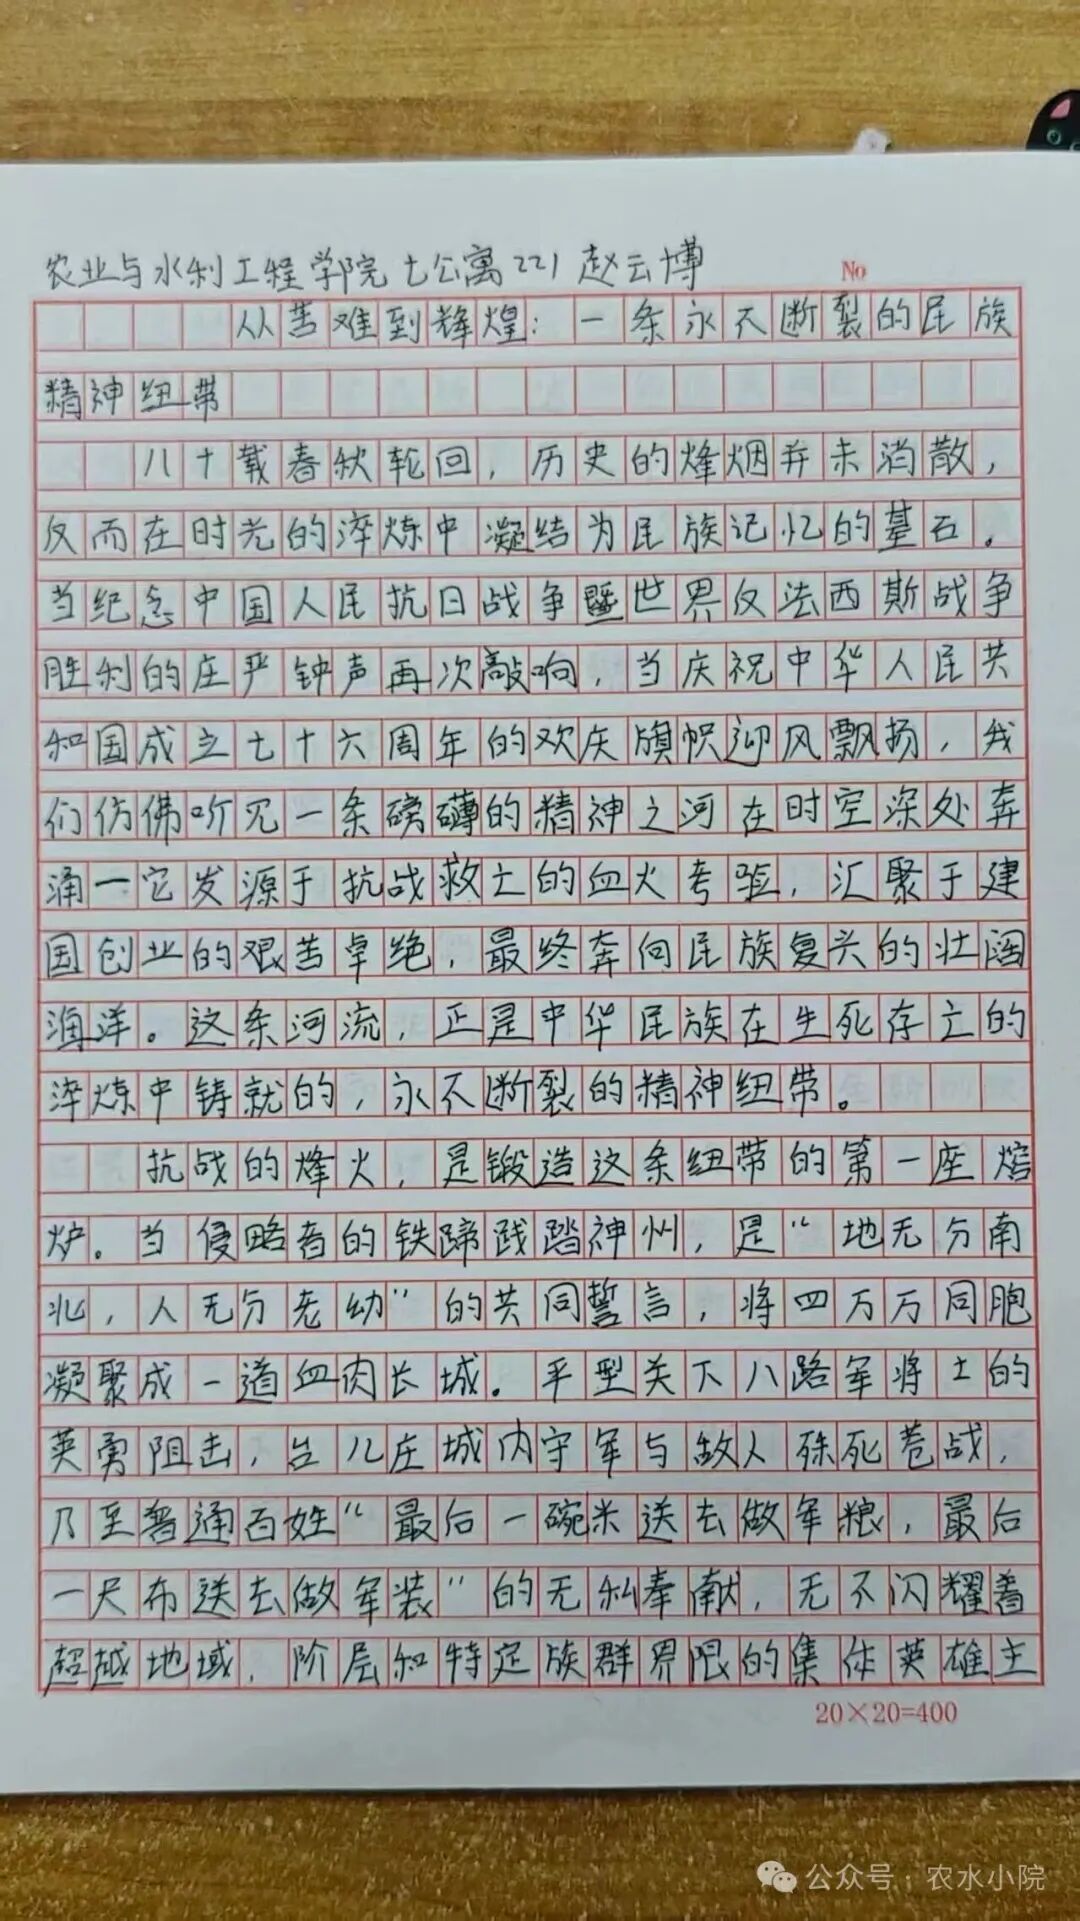 农业与水利工程学院 七公寓221 赵云博
No
从苦难到辉煌：一条永不断裂的民族
精神纽带
八十载春秋轮回，历史的烽烟并未消散，
反而在时光的淬炼中凝结为民族记忆的基石。
当纪念中国人民抗日战争暨世界反法西斯战争
胜利的庄严钟声再次敲响，当庆祝中华人民共
和国成立七十六周年的欢庆旗帜迎风飘扬，我
们仿佛听见一条磅礴的精神之河在时空深处奔
涌—它发源于抗战救亡的血火考验，汇聚于建
国创业的艰苦卓绝，最终奔向民族复兴的壮阔
海洋。这条河流，正是中华民族在生死存亡的
淬炼中铸就的，永不断裂的精神纽带。
抗战的烽火，是锻造这条纽带的第一座熔
炉。当侵略者的铁蹄践踏神州，是“地无分南
北，人无分老幼”的共同誓言，将四万万同胞
凝聚成一道血肉长城。平型关下八路军将士的
英勇阻击，台儿庄城内守军与敌人殊死巷战，
乃至普通百姓“最后一碗米送去做军粮，最后
一尺布送去做军装”的无私奉献，无不闪耀着
超越地域、阶层和特定族群界限的集体英雄主
20×20=400
公众号·农水小院